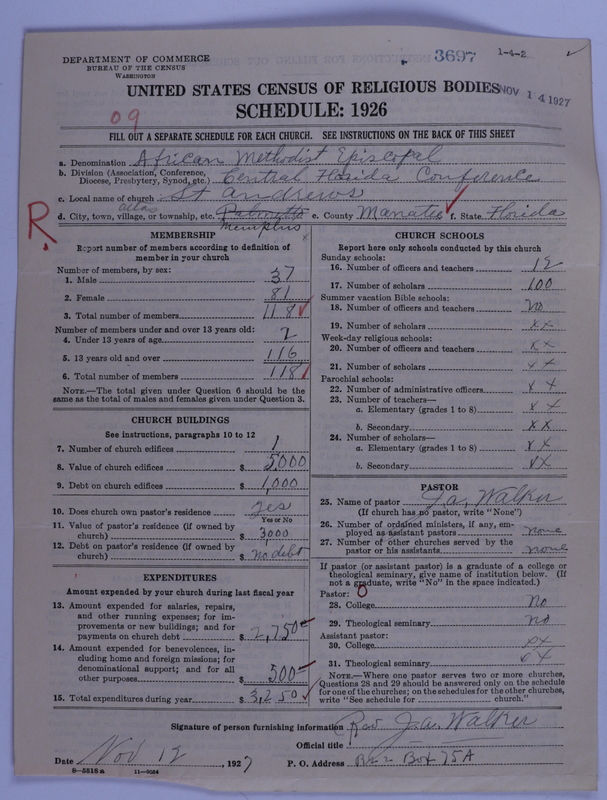 3697 1-4-2
DEPARTMENT OF COMMERCE
BUREAU OF THE CENSUS
WASHINGTON
UNITED STATES CENSUS OF RELIGIOUS BODIES NOV 14 1927
SCHEDULE: 1926
09
FILL OUT A SEPARATE SCHEDULE FOR EACH CHURCH. SEE INSTRUCTIONS ON THE BACK OF THIS SHEET
a. Denomination African Methodist Episcopal
b. Division (Association, Conference, Diocese, Presbytery, Synod, etc.) Central Florida Conference
c. Local name of church St Andrews
R. d. City, town, village, or township, etc. Palmetto e. County Manatee f. State Florida
Memphis
MEMBERSHIP
Report number of members according to definition of
member in your church
Number of members, by sex:
1. Male 37
2. Female 81
3. Total number of members 118
Number of members under and over 13 years old:
4. Under 13 years of age 2
5. 13 years old and over 116
6. Total number of members 118
NOTE.—The total given under Question 6 should be the
same as the total of males and females given under Question 3.
CHURCH BUILDINGS
See instructions, paragraphs 10 to 12
7. Number of church edifices 1
8. Value of church edifices $ 5,000
9. Debt on church edifices $ 1,000
10. Does church own pastor's residence yes
Yes or No
11. Value of pastor's residence (if owned by
church) $ 3000
12. Debt on pastor's residence (if owned by
church) $ no debt
EXPENDITURES
Amount expended by your church during last fiscal year
13. Amount expended for salaries, repairs,
and other running expenses; for im-
provements or new buildings; and for
payments on church debt $ 2,750
14. Amount expended for benevolences, in-
cluding home and foreign missions; for
denominational support; and for all
other purposes $ 500
15. Total expenditures during year $ 3,250
CHURCH SCHOOLS
Report here only schools conducted by this church
Sunday schools:
16. Number of officers and teachers 12
17. Number of scholars 100
Summer vacation Bible schools:
18. Number of officers and teachers no
19. Number of scholars xx
Week-day religious schools:
20. Number of officers and teachers xx
21. Number of scholars xx
Parochial schools:
22. Number of administrative officers xx
23. Number of teachers—
a. Elementary (grades 1 to 8) xx
b. Secondary xx
24. Number of scholars—
a. Elementary (grades 1 to 8) xx
b. Secondary xx
PASTOR
25. Name of pastor J.A. Walker
(If church has no pastor, write "None")
26. Number of ordained ministers, if any, em-
ployed as assistant pastors none
27. Number of other churches served by the
pastor or his assistants none
If pastor (or assistant pastor) is a graduate of a college or
theological seminary, give name of institution below. (If
not a graduate, write "No" in the space indicated.)
Pastor: 0
28. College no
29. Theological seminary no
Assistant pastor:
30. College xx
31. Theological seminary xx
NOTE.—Where one pastor serves two or more churches,
Questions 28 and 29 should be answered only on the schedule
for one of the churches; on the schedules for the other churches,
write "See schedule for church."
Signature of person furnishing information Rev J.A. Walker
Official title
Date Nov 12, 1927 P. O. Address Box 75A
8-5518a 11-9034